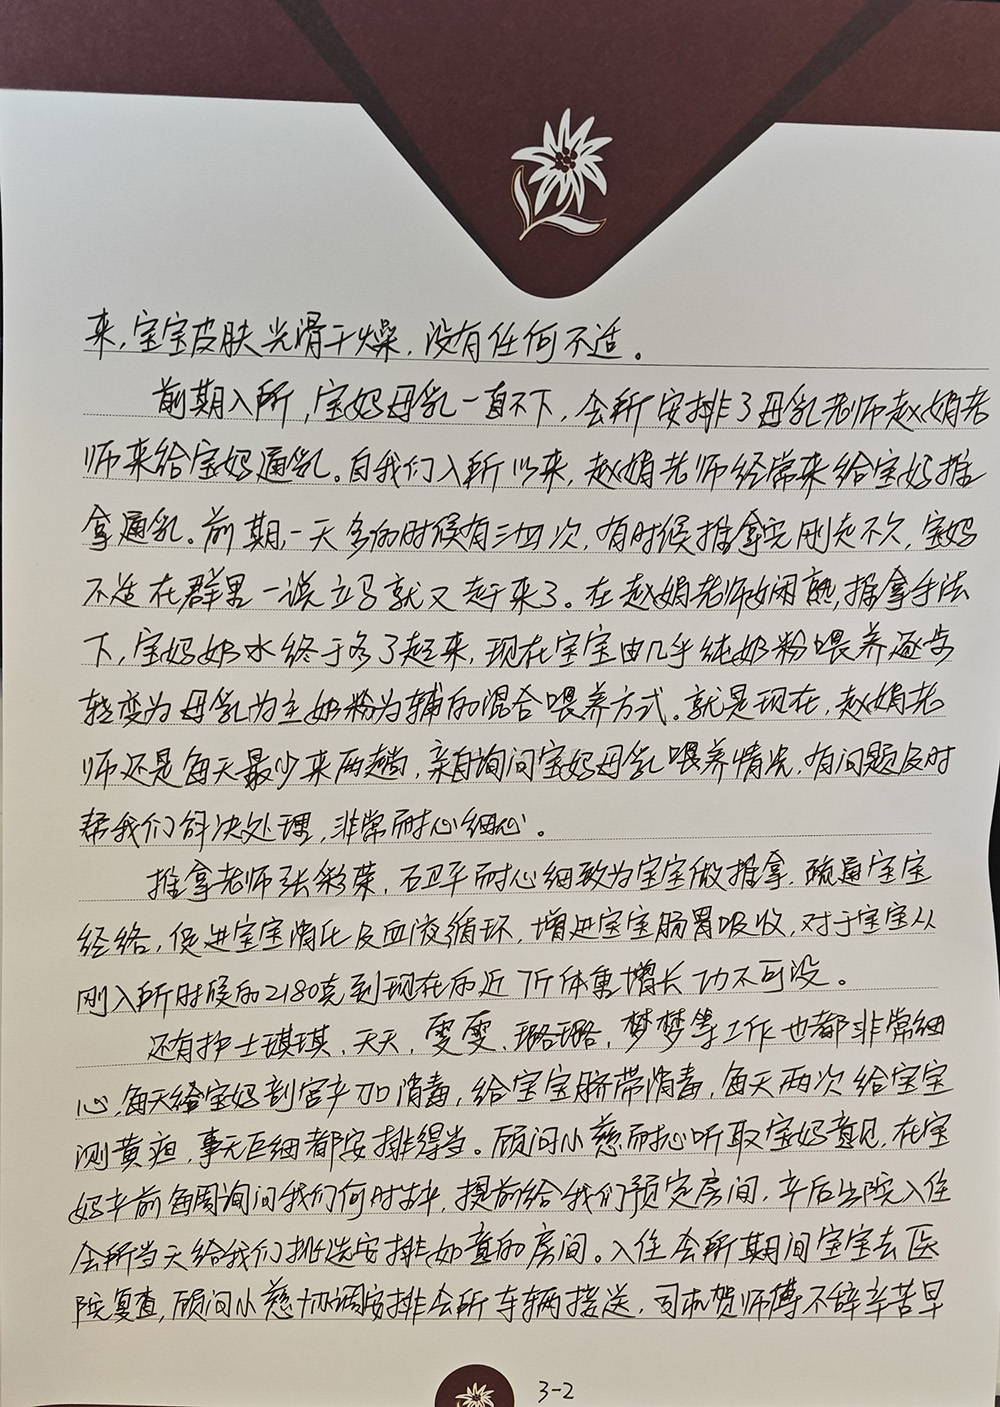 来，宝宝皮肤光滑干燥，没有任何不适。
前期入所，宝妈母乳一直不下，会所安排了母乳老师赵娟老
师来给宝妈通乳。自我们入所以来，赵娟老师经常来给宝妈推
拿通乳。前期一天多的时候有三四次，有时候推拿完刚走不久，宝妈
不适在群里一说立马就又赶来了。在赵娟老师娴熟推拿手法
下，宝妈奶水终于多了起来，现在宝宝由几乎纯奶粉喂养逐步
转变为母乳为主奶粉为辅的混合喂养方式。就是现在，赵娟老
师还是每天最少来两趟，亲自询问宝妈母乳喂养情况，有问题及时
帮我们解决处理，非常耐心细心。
推拿老师张彩荣，石卫平耐心细致为宝宝做推拿，疏通宝宝
经络，促进宝宝消化及血液循环，增进宝宝肠胃吸收，对于宝宝从
刚入所时候的2180克到现在的近7斤体重增长功不可没。
还有护士琪琪，天天，雯雯，璐璐，梦梦等工作也都非常细
心，每天给宝妈剖宫产刀口消毒，给宝宝脐带消毒，每天两次给宝宝
测黄疸，事无巨细都安排得当。顾问小慈耐心听取宝妈意见，在宝
妈产前每周询问我们何时，提前给我们预定房间，产后出院入住
会所当天给我们挑选安排如意的房间。入住会所期间宝宝去医
院复查，顾问小慈协调安排会所车辆接送，司机贺师傅不辞辛苦早
3-2